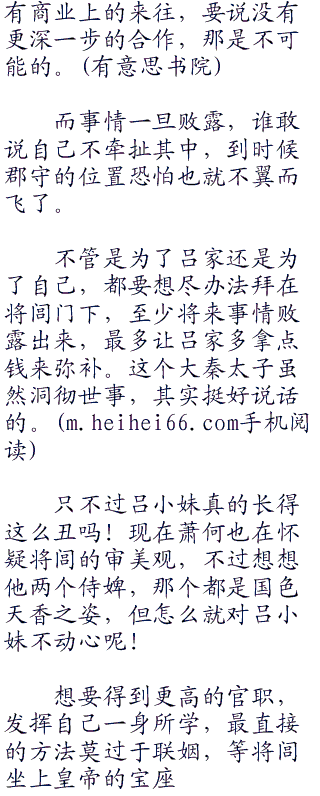 有商业上的来往，要说没有
更深一步的合作，那是不可
能的。(有意思书院)
而事情一旦败露，谁敢
说自己不牵扯其中，到时候
郡守的位置恐怕也就不翼而
飞了。
不管是为了吕家还是为
了自己，都要想尽办法拜在
将闾门下，至少将来事情败
露出来，最多让吕家多拿点
钱来弥补。这个大秦太子虽
然洞彻世事，其实挺好说话
的。(m.heihei66.com手机阅
读)
只不过吕小妹真的长得
这么丑吗！现在萧何也在怀
疑将闾的审美观，不过想想
他两个侍婢，那个都是国色
天香之姿，但怎么就对吕小
妹不动心呢！
想要得到更高的官职，
发挥自己一身所学，最直接
的方法莫过于联姻，等将闾
坐上皇帝的宝座